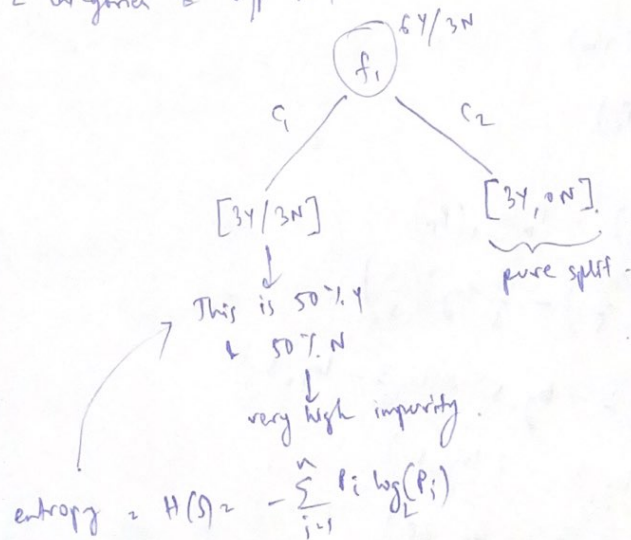 2 categories
6Y/3N
f1
C1 C2
[3Y/3N] [3Y, 0N].
pure split.
This is 50% Y
& 50% N
very high impurity.
entropy = H(S) = - n∑i=1 Pi log2(Pi)